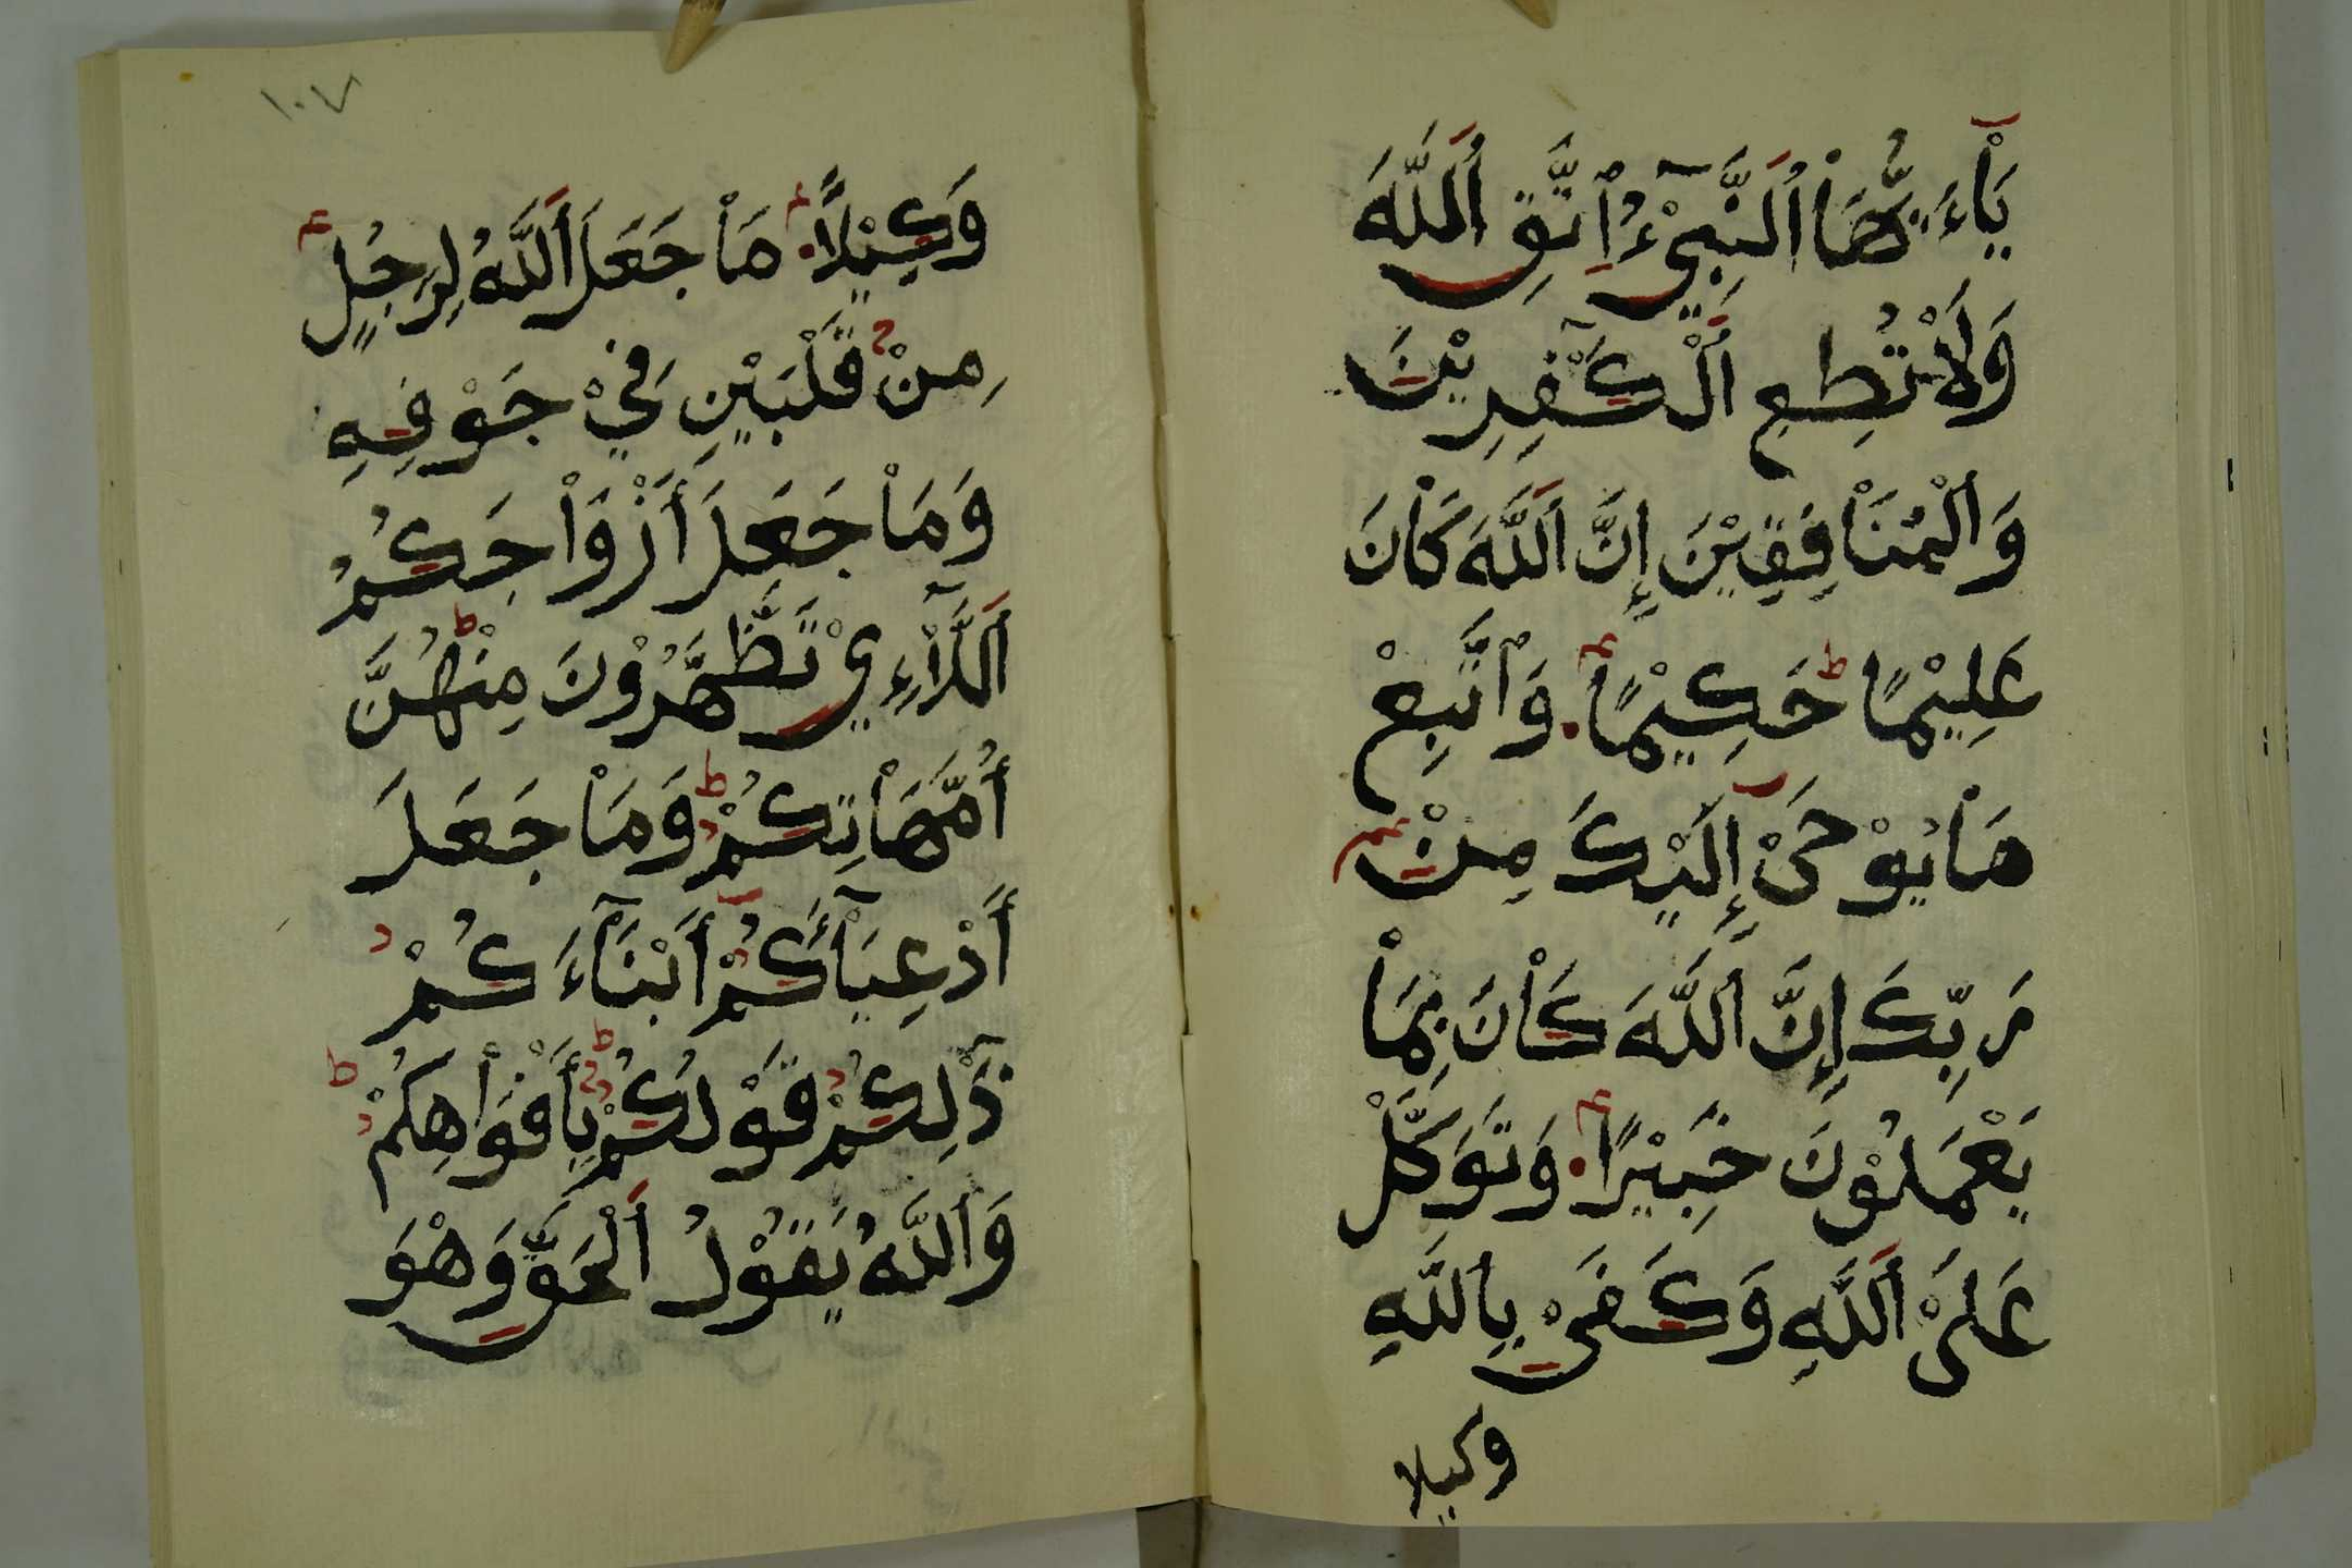 يَاْءَيُّهَاْ اَلنَّبِيْٓءُ اِتَّقِ اِللَّهَ
وَلَاْ تُطِعِ اِلْكَٰفِرِيْنَ
وَالْمُنَاْفِقِيْنَ إِنَّ اَللَّهَ كَاْنَ
عَلِيْمًا حَكِيْمًا وَاتَّبِعْ
مَاْ يُوْحَىْ إِلَيْكَ مِنْ
رَبِّكَ إِنَّ اَللَّهَ كَاْنَ بِمَاْ
يَعْمَلُوْنَ خَبِيْرًا وَتَوَكَّلْ
عَلَىْ اَللَّهِ وَكَفَىْ بِاللَّهِ
وكيلا
١٠٧
وَكِيْلًا مَاْ جَعَلَ اَللَّهُ لِرَجُلٍ
مِنْ قَلْبَيْنِ فِيْ جَوْفِهِ
وَمَاْ جَعَلَ أَزْوَاْجَكُمْ
اَللَّآءِيْ تَظَّهَّرُوْنَ مِنْهُنَّ
أُمَّهَاْتِكُمْ وَمَاْ جَعَلَ
أَدْعِيَآءَكُمْ أَبْنَآءَكُمْ
ذَٰلِكُمْ قَوْلُكُمْ بِأَفْوَاْهِكُمْ
وَاَللَّهُ يَقُوْلُ اَلْحَقَّ وَهْوَ